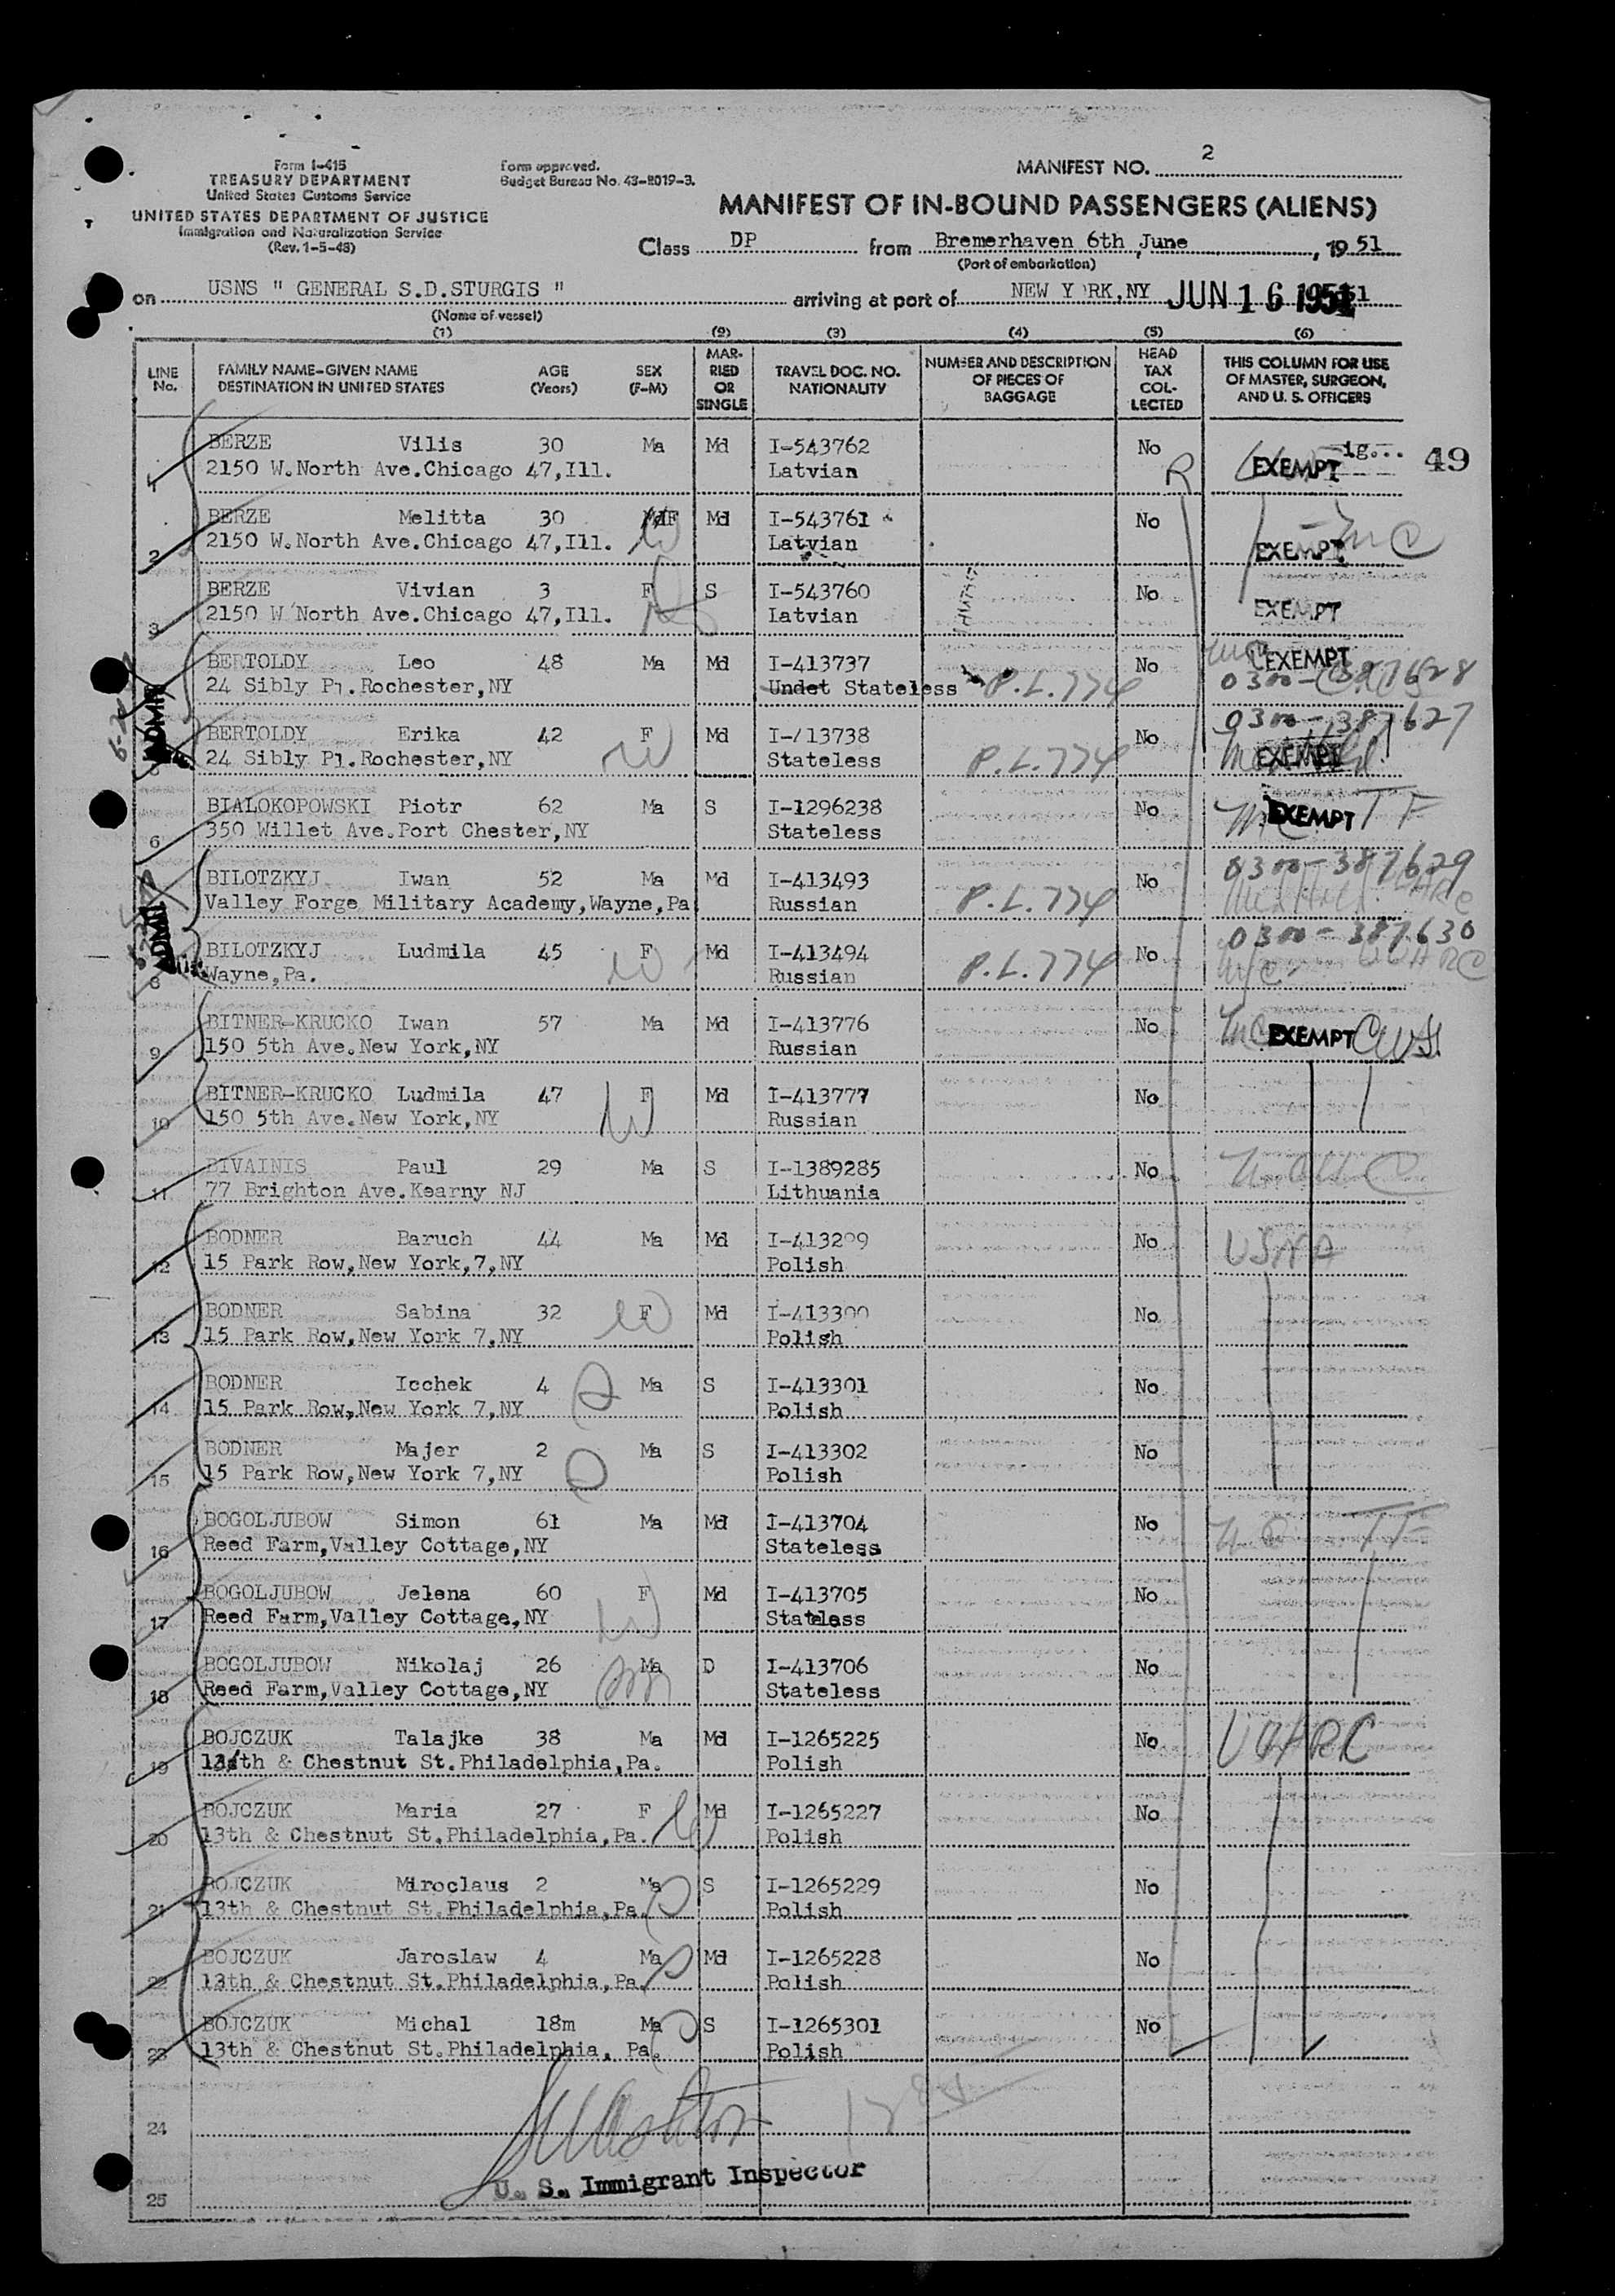 Form I-415
TREASURY DEPARTMENT
United States Customs Service
UNITED STATES DEPARTMENT OF JUSTICE
Immigration and Naturalization Service
(Rev. 1-5-48)
Form approved.
Budget Bureau No. 43-R019-3.
MANIFEST NO. 2
MANIFEST OF IN-BOUND PASSENGERS (ALIENS)
Class DP from Bremerhaven 6th, June, 19 51
(Port of embarkation)
on USNS " GENERAL S.D.STURGIS " arriving at port of NEW Y RK,NY JUN 16 1951
(Name of vessel)
(1) (2) (3) (4) (5) (6)
LINE No. FAMILY NAME-GIVEN NAME DESTINATION IN UNITED STATES AGE (Years) SEX (F-M) MARRIED OR SINGLE TRAVEL DOC. NO. NATIONALITY NUMBER AND DESCRIPTION OF PIECES OF BAGGAGE HEAD TAX COLLECTED THIS COLUMN FOR USE OF MASTER, SURGEON, AND U. S. OFFICERS
1 BERZE Vilis 30 Ma Md I-543762 No R EXEMPT 49
2150 W.North Ave.Chicago 47,Ill. Latvian
2 BERZE Melitta 30 F Md I-543761 No EXEMPT
2150 W.North Ave.Chicago 47,Ill. W Latvian
3 BERZE Vivian 3 F S I-543760 No EXEMPT
2150 W North Ave.Chicago 47,Ill. Latvian
BERTOLDY Leo 48 Ma Md I-413737 No EXEMPT
24 Sibly Pl.Rochester,NY Undet Stateless P.L.774 0300-387628
BERTOLDY Erika 42 F Md I-413738 No 0300-387627
24 Sibly Pl.Rochester,NY W Stateless P.L.774 EXEMPT
6 BIALOKOPOWSKI Piotr 62 Ma S I-1296238 No EXEMPT TF
350 Willet Ave.Port Chester,NY Stateless
BILOTZKYJ Iwan 52 Ma Md I-413493 No 0300-387629
Valley Forge Military Academy,Wayne,Pa Russian P.L.774
8 BILOTZKYJ Ludmila 45 F Md I-413494 No 0300-387630
Wayne,Pa. W Russian P.L.774
9 BITNER-KRUCKO Iwan 57 Ma Md I-413776 No EXEMPT CWS
150 5th Ave.New York,NY Russian
10 BITNER-KRUCKO Ludmila 47 F Md I-413777 No
150 5th Ave.New York,NY W Russian
11 BIVAINIS Paul 29 Ma S I-1389285 No
77 Brighton Ave.Kearny NJ Lithuania
12 BODNER Baruch 44 Ma Md I-413299 No USNA
15 Park Row,New York,7,NY Polish
13 BODNER Sabina 32 F Md I-413300 No
15 Park Row,New York 7,NY W Polish
14 BODNER Icchek 4 Ma S I-413301 No
15 Park Row,New York 7,NY Polish
15 BODNER Majer 2 Ma S I-413302 No
15 Park Row,New York 7,NY Polish
16 BOGOLJUBOW Simon 61 Ma Md I-413704 No TF
Reed Farm,Valley Cottage,NY Stateless
17 BOGOLJUBOW Jelena 60 F Md I-413705 No
Reed Farm,Valley Cottage,NY W Stateless
18 BOGOLJUBOW Nikolaj 26 Ma D I-413706 No
Reed Farm,Valley Cottage,NY Stateless
19 BOJCZUK Talajke 38 Ma Md I-1265225 No UUARC
13th & Chestnut St.Philadelphia,Pa. Polish
20 BOJCZUK Maria 27 F Md I-1265227 No
13th & Chestnut St.Philadelphia,Pa. W Polish
21 BOJCZUK Miroclaus 2 Ma S I-1265229 No
13th & Chestnut St.Philadelphia,Pa. Polish
22 BOJCZUK Jaroslaw 4 Ma Md I-1265228 No
13th & Chestnut St.Philadelphia,Pa. Polish
23 BOJCZUK Michal 18m Ma S I-1265301 No
13th & Chestnut St.Philadelphia, Pa. Polish
24
U. S. Immigrant Inspector
25